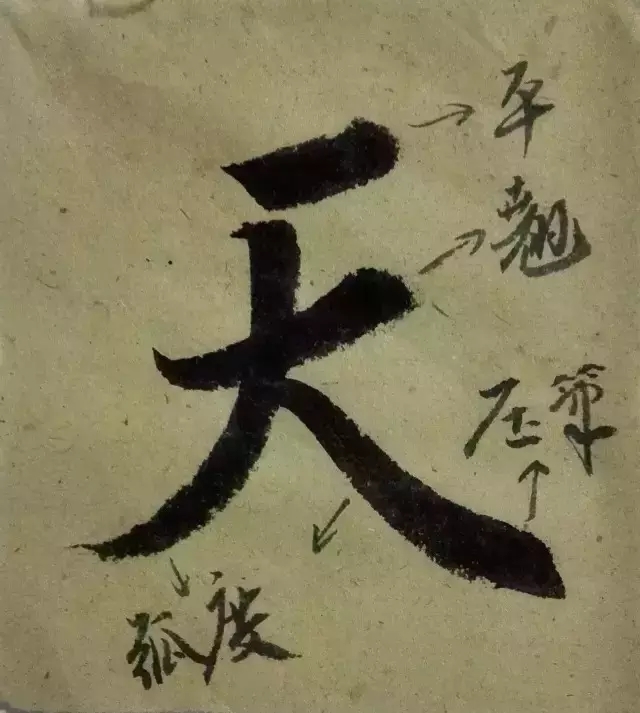 平
翘
天
压筆
弧度